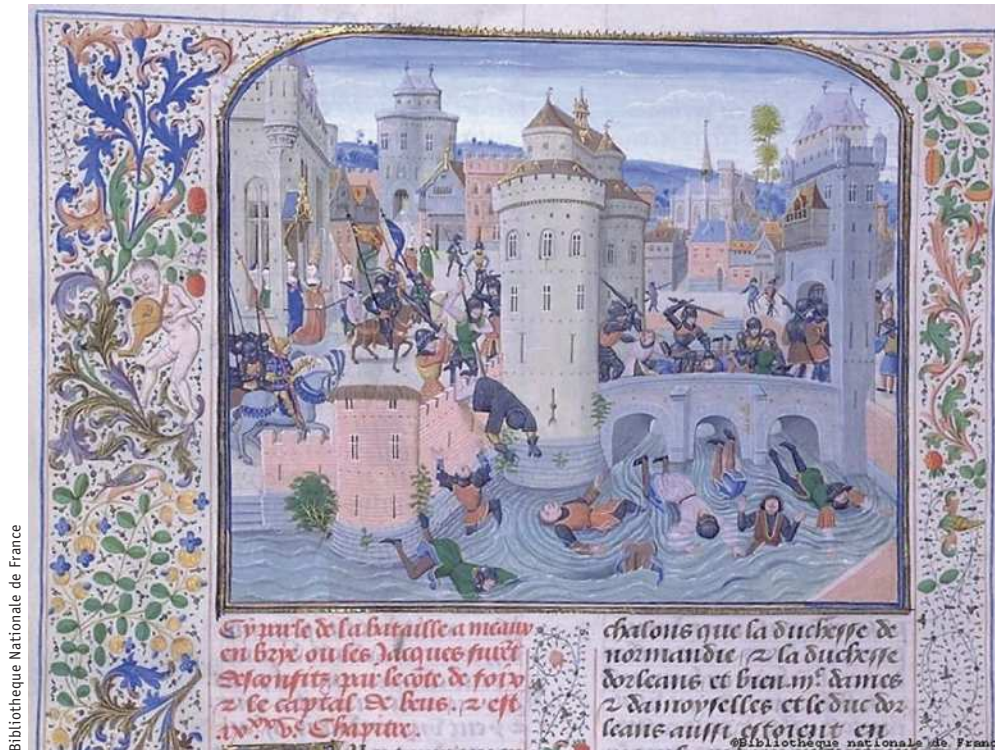 Bibliotheque Nationale de France
Cy parle de la bataille a meaux
en brye ou les Jacques furēt
desconfitz par le cōte de foix
z le captal de beus. z est
Chapitre.
chalons que la duchesse de
normandie z la duchesse
dorleans et bien. dames
z damoyselles et le duc dor
leans aussi estoient en
©Bibliothèque nationale de Franc